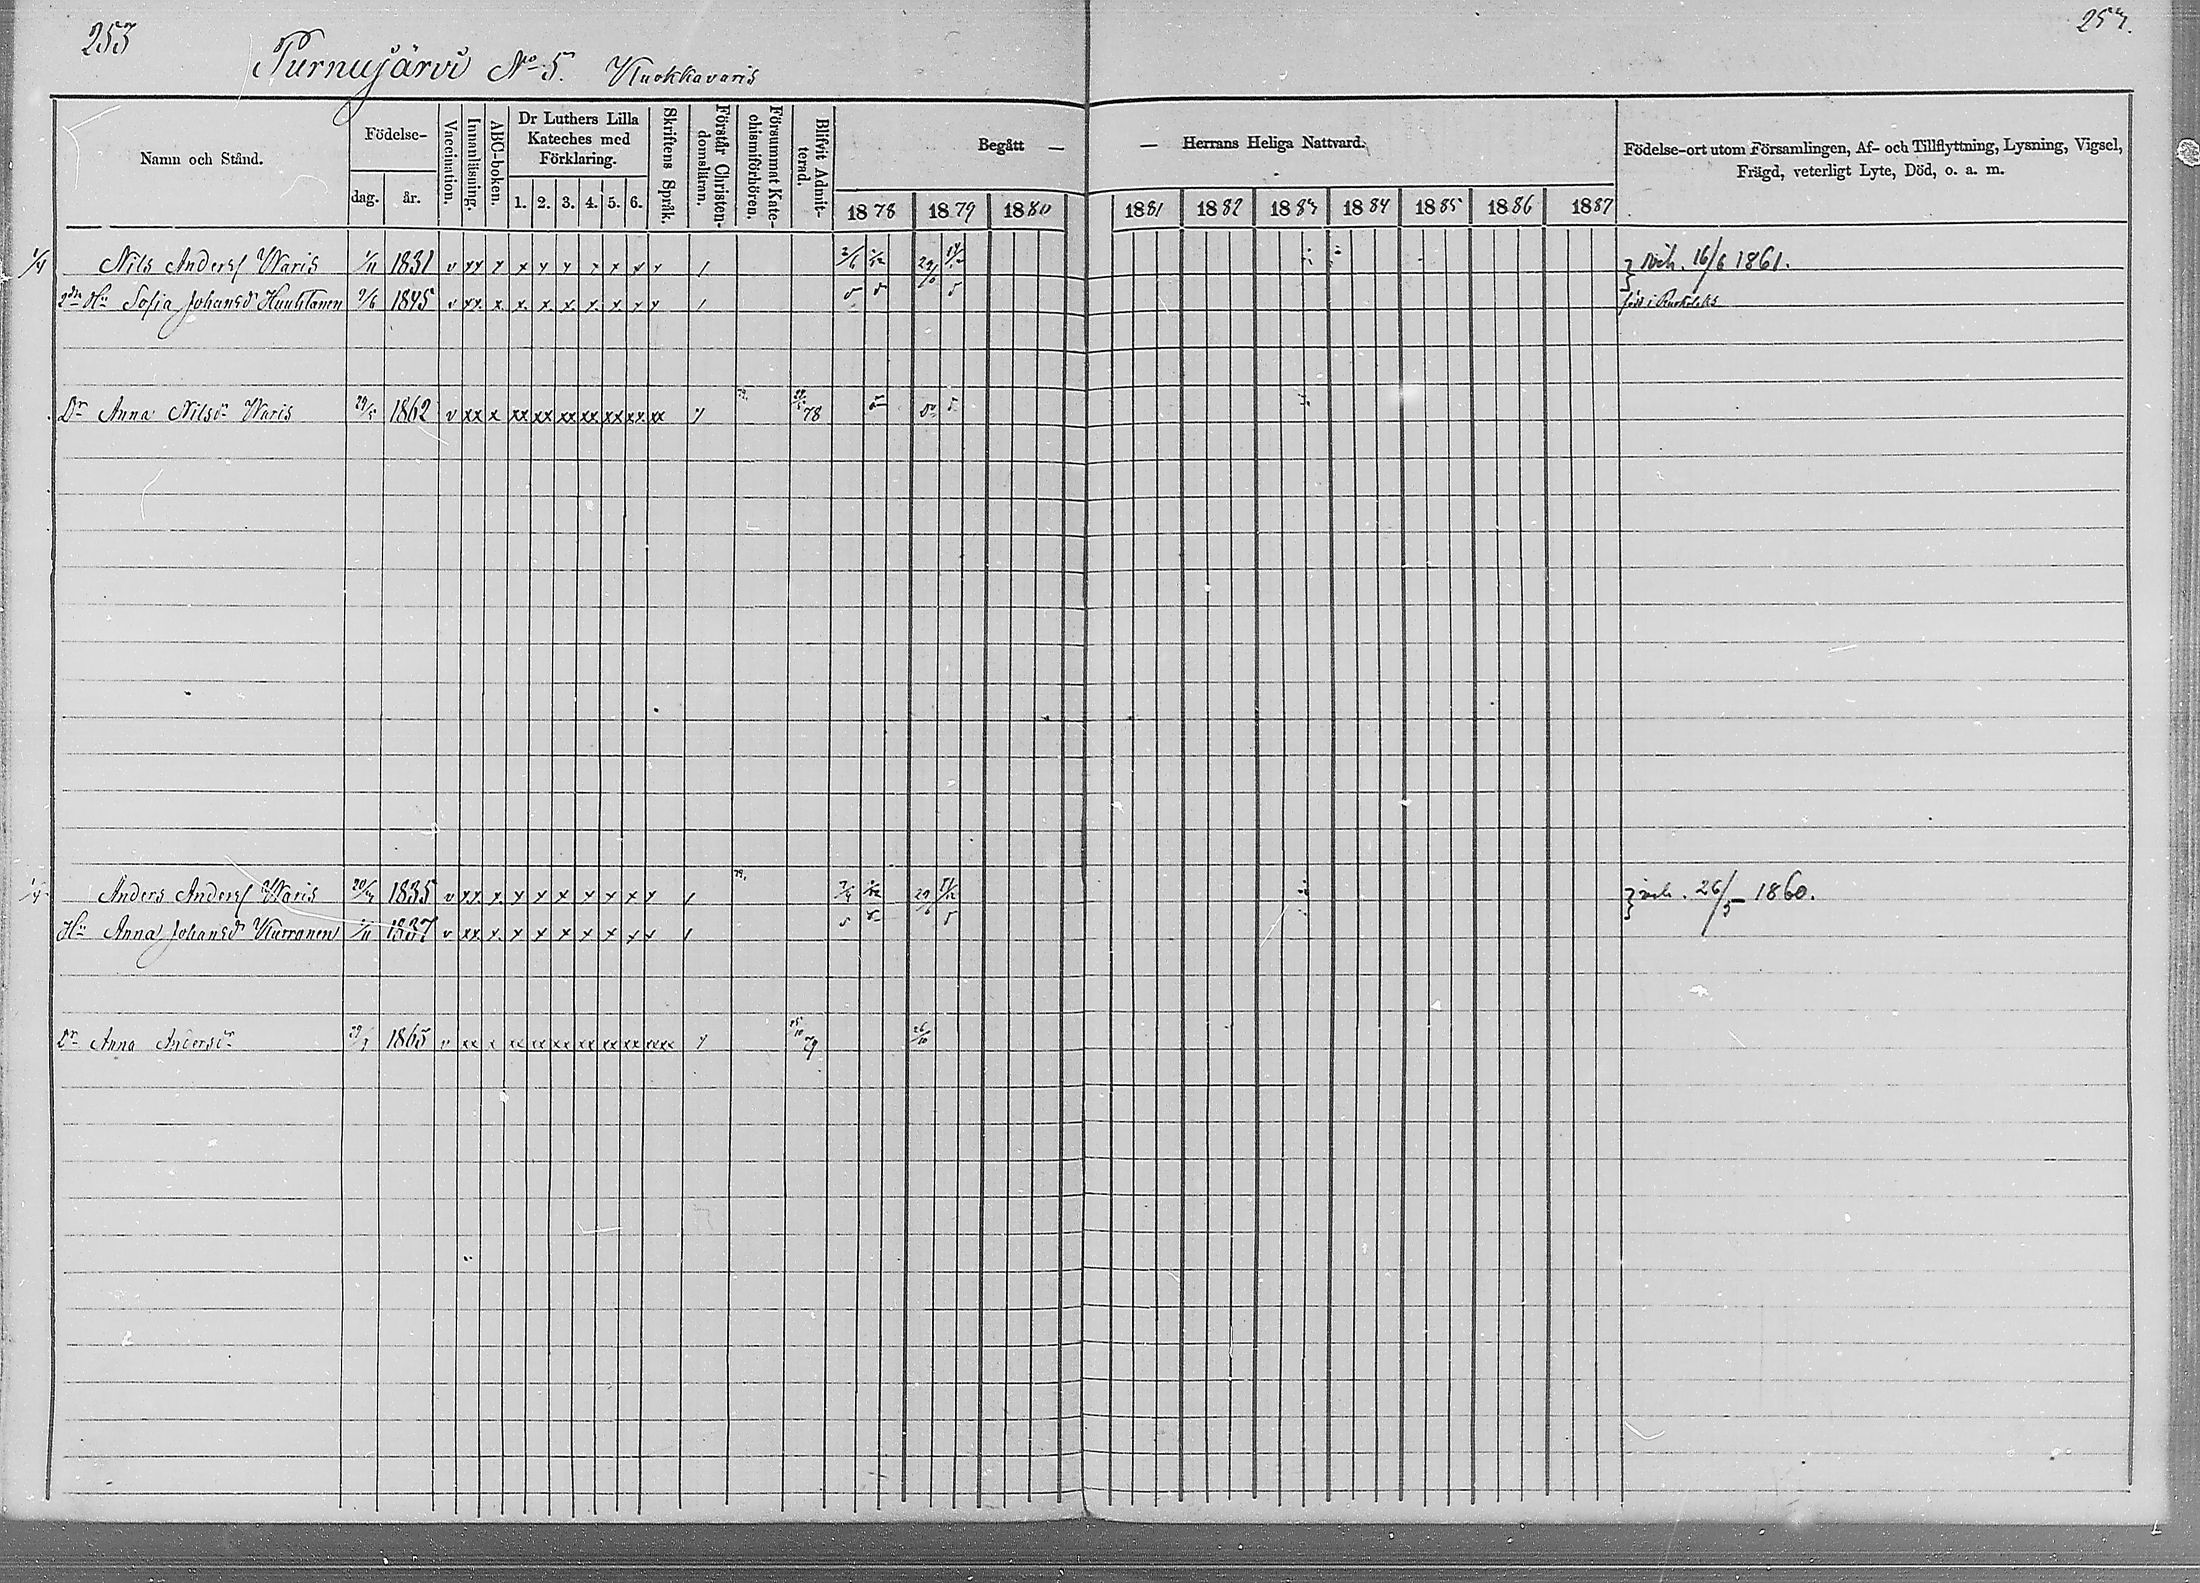 253
257.
Purnujärvi No 5. Kuokkavaris
Namn och Stånd.
Födelse-
dag.
år.
Vaccination.
Innanläsning.
ABC-boken.
Dr Luthers Lilla Kateches med Förklaring.
1. 2. 3. 4. 5. 6.
Skriftens Språk.
Förstår Christendomsläran.
Försummat Katechismiförhören.
Blifvit Admitterad.
Begått — — Herrans Heliga Nattvard.
1878 1879 1880 1881 1882 1883 1884 1885 1886 1887
Födelse-ort utom Församlingen, Af- och Tillflyttning, Lysning, Vigsel,
Frägd, veterligt Lyte, Död, o. a. m.
1/4 Nils Andersf Waris 1/11 1831 v xx x x x x x x x x / 16/6 1861.
2dra Hu Sofia Johansdr Huuhtanen 9/6 1845 v xx. x. x. x. x. x. x. x x / född i Ruokolaks
Dr Anna Nilsdr Waris 1862 v xx x xx xx xx xx xx xx xx 78
1/4 Anders Andersf Waris 1835 v xx x x x x x x x x / 26/5 1860.
Hu Anna Johansdr Kurronen 1/11 1837 v xx. x. x x x x x x x /
Dr Anna Andersdr 1865 v xx x xx xx xx xx xx xx xxx 79 26/10